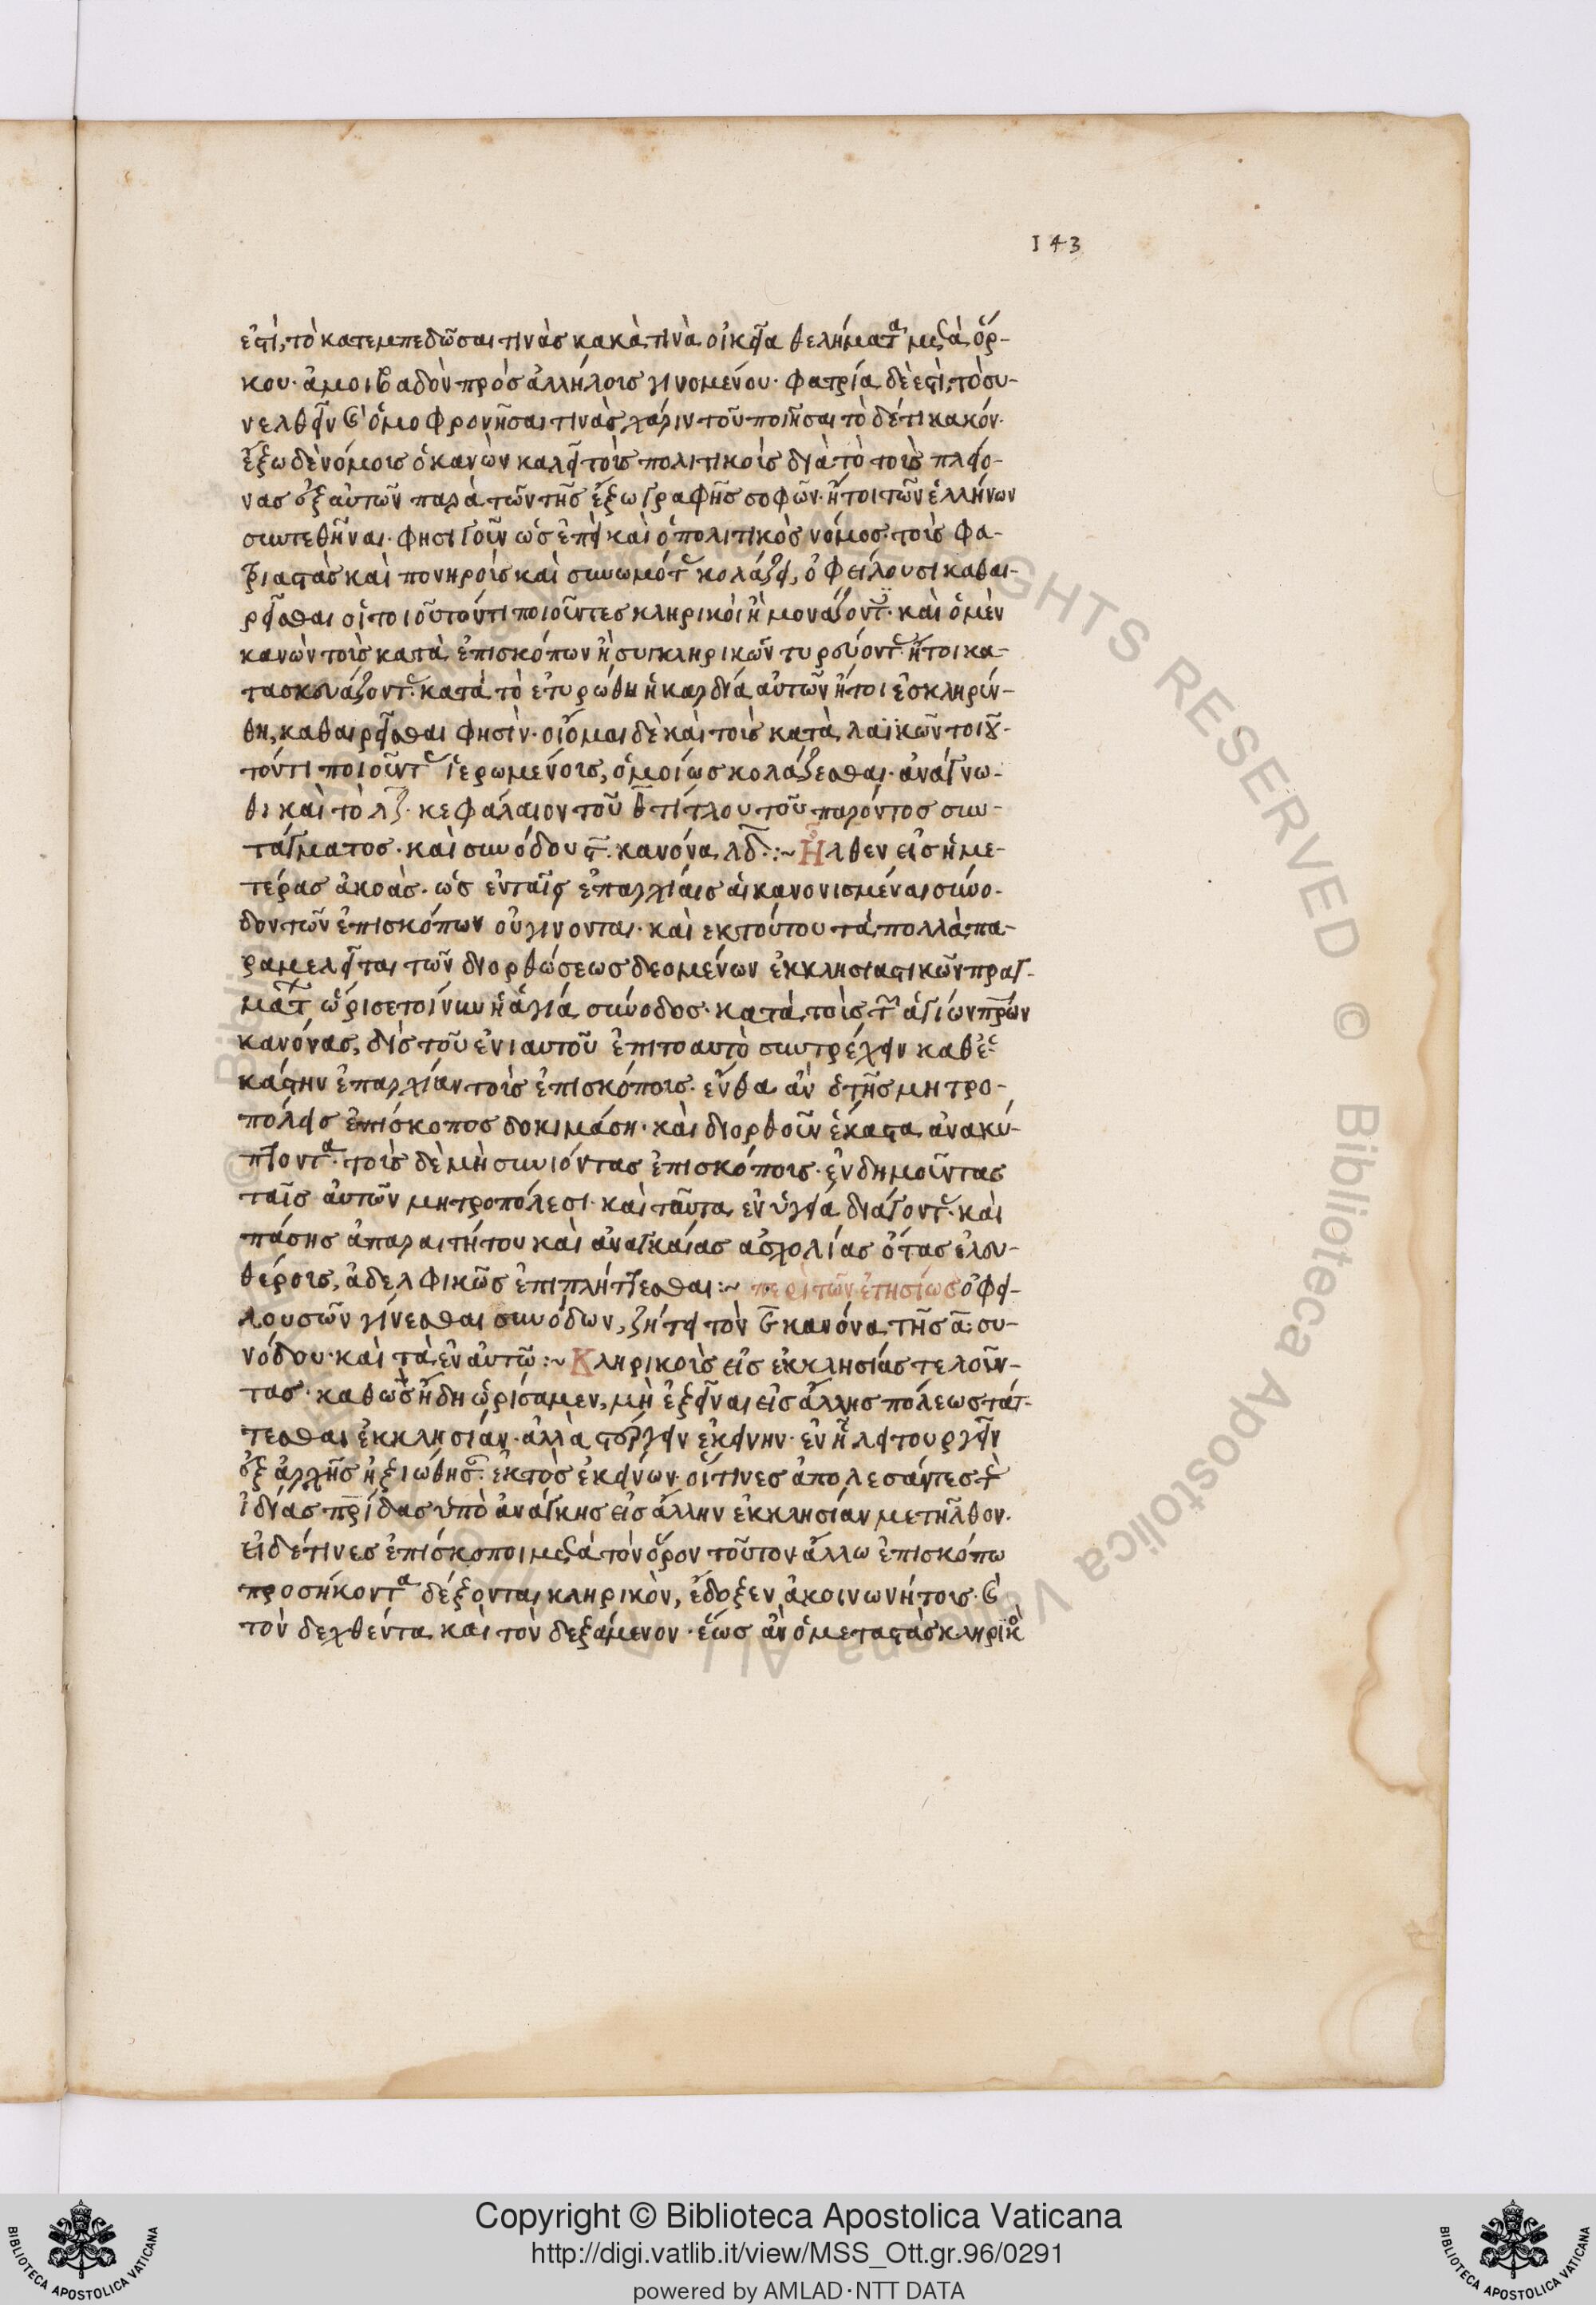 143
ἐστὶ, τὸ κατεμπεδῶσαι τινὰς κακὰ τινὰ οἰκεῖα θελήματα μετὰ ὅρ-
κου· ἀμοιβαδὸν πρὸς ἀλλήλους γινομένου· φατρία δὲ ἐστὶ, τὸ συ-
νελθεῖν καὶ ὁμοφρονῆσαι τινὰς χάριν τοῦ ποιῆσαι τὸ δέ τι κακόν·
ἔξω δὲ νόμους ὁ κανὼν καλεῖ τοὺς πολιτικοὺς διὰ τὸ τοὺς πλείο-
νας ἐξ αὐτῶν παρὰ τῶν τῆς ἔξω γραφῆς σοφῶν· ἤτοι τῶν ἑλλήνων
συντεθῆναι· φησὶ γοῦν ὡς ἐπεὶ καὶ ὁ πολιτικὸς νόμος· τοὺς φα-
τριαστὰς καὶ πονηροὺς καὶ συνωμότας κολάζει, ὀφείλουσι καθαι-
ρεῖσθαι οἱ τοιοῦτόν τι ποιοῦντες κληρικοὶ ἢ μονάζοντες· καὶ ὁ μὲν
κανὼν τοὺς κατὰ ἐπισκόπων ἢ συγκληρικῶν τυρεύοντας ἤτοι κα-
τασκευάζοντας κατὰ τὸ ἐτυρώθη ἡ καρδία αὐτῶν ἤτοι ἐσκληρύν-
θη, καθαιρεῖσθαι φησὶν· οἶομαι δὲ καὶ τοὺς κατὰ λαϊκῶν τοιοῦ-
τόν τι ποιοῦντας ἱερωμένους, ὁμοίως κολάζεσθαι· ἀνάγνω-
θι καὶ τὸ λζ· κεφάλαιον τοῦ θ τίτλου τοῦ παρόντος συν-
τάγματος· καὶ συνόδου ϛ· κανόνα λδ·:~ Ἦλθεν εἰς ἡμε-
τέρας ἀκοὰς· ὡς ἐν ταῖς ἐπαρχίαις αἱ κανονισμέναι σύνο-
δοι τῶν ἐπισκόπων οὐ γίνονται· καὶ ἐκ τούτου τὰ πολλὰ πα-
ραμελεῖται τῶν διορθώσεως δεομένων ἐκκλησιαστικῶν πραγ-
μάτων ὥρισε τοίνυν ἡ ἁγία σύνοδος· κατὰ τοὺς τῶν ἁγίων πρ̅ων
κανόνας, δὶς τοῦ ἐνιαυτοῦ ἐπιτοαυτὸ συντρέχειν καθ' ἑ-
κάστην ἐπαρχίαν τοὺς ἐπισκόπους· ἔνθα ἂν ὁ τῆς μητρο-
πόλεως ἐπίσκοπος δοκιμάση· καὶ διορθοῦν ἕκαστα ἀνακύ-
πτοντα· τοὺς δὲ μὴ συνιόντας ἐπισκόπους· ἐνδημοῦντας
ταῖς αὐτῶν μητροπόλεσι· καὶ ταῦτα ἐν ὑγεία διάγοντας· καὶ
πάσης ἀπαραιτήτου καὶ ἀναγκαίας ἀσχολίας ὄντας ἐλευ-
θέρους, ἀδελφικῶς ἐπιπλήττεσθαι:~ περὶ τῶν ἐτησίως ὀφει-
λουσῶν γίνεσθαι συνόδων, ζήτει τὸν ε κανόνα τῆς α· συ-
νόδου· καὶ τὰ ἐν αὐτῶ:~ Κληρικοὺς εἰς ἐκκλησίας τελοῦν-
τας· καθὼς ἤδη ὡρίσαμεν, μὴ ἐξεῖναι εἰς ἄλλης πόλεως τάτ-
τεσθαι ἐκκλησίαν· ἀλλὰ στέργειν ἐκείνην· ἐν ἧ λειτουργεῖν
ἐξ ἀρχῆς ἠξιώθησαν· ἐκτὸς ἐκείνων· οἵτινες ἀπολεσάντες τὰς
ἰδίας πρ̅ίδας ὑπὸ ἀνάγκης εἰς ἄλλην ἐκκλησίαν μετῆλθον·
εἰ δέ τινες ἐπίσκοποι μετὰ τὸν ὅρον τοῦτον ἄλλω ἐπισκόπω
προσήκοντα δέξονται κληρικὸν, ἔδοξεν ἀκοινωνήτους· καὶ
τὸν δεχθέντα καὶ τὸν δεξάμενον· ἕως ἂν ὁ μεταστὰς κληρικὸς
Copyright © Biblioteca Apostolica Vaticana
http://digi.vatlib.it/view/MSS_Ott.gr.96/0291
powered by AMLAD·NTT DATA